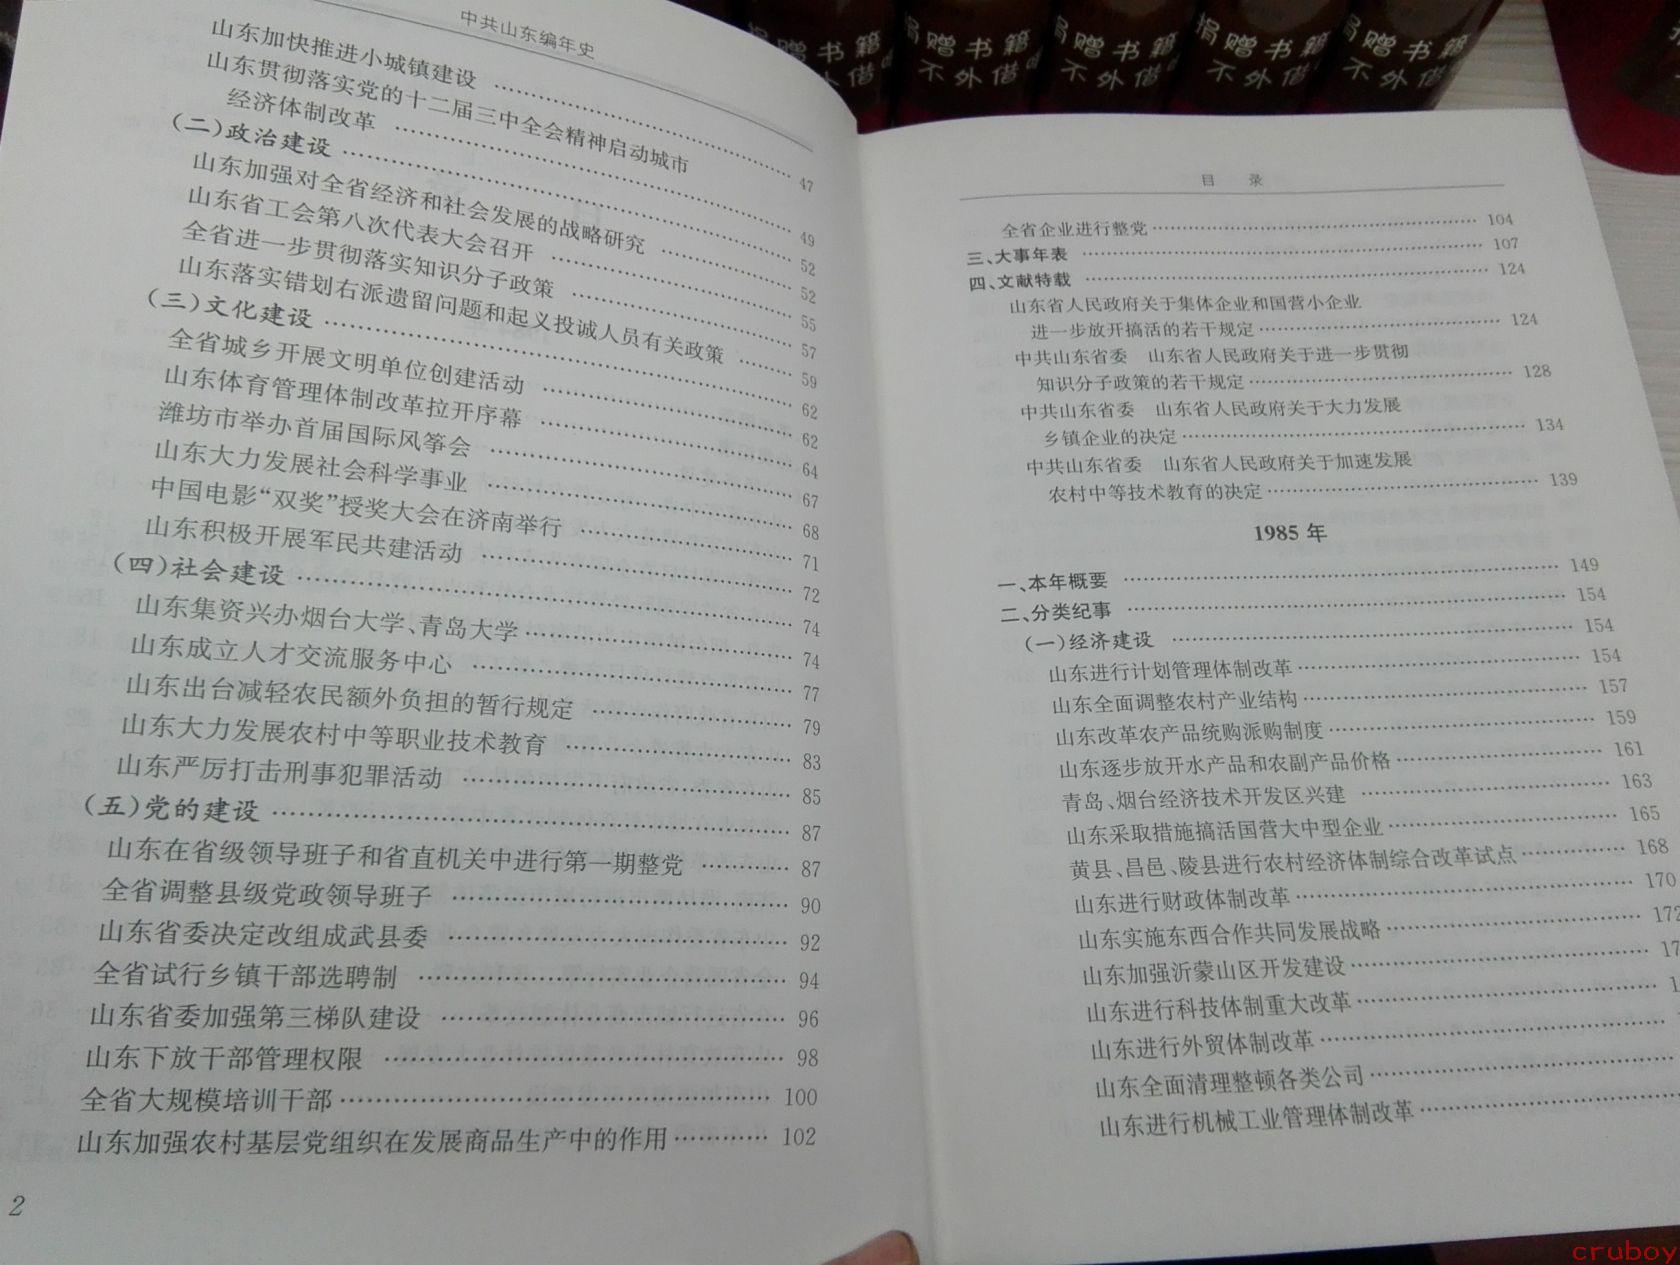 中共山东编年史
山东加快推进小城镇建设 …… 47
山东贯彻落实党的十二届三中全会精神启动城市
经济体制改革 …… 49
(二)政治建设 …… 52
山东加强对全省经济和社会发展的战略研究 …… 52
山东省工会第八次代表大会召开 …… 55
全省进一步贯彻落实知识分子政策 …… 57
山东落实错划右派遗留问题和起义投诚人员有关政策 …… 59
(三)文化建设 …… 62
全省城乡开展文明单位创建活动 …… 62
山东体育管理体制改革拉开序幕 …… 64
潍坊市举办首届国际风筝会 …… 67
山东大力发展社会科学事业 …… 68
中国电影“双奖”授奖大会在济南举行 …… 71
山东积极开展军民共建活动 …… 72
(四)社会建设 …… 74
山东集资兴办烟台大学、青岛大学 …… 74
山东成立人才交流服务中心 …… 77
山东出台减轻农民额外负担的暂行规定 …… 79
山东大力发展农村中等职业技术教育 …… 83
山东严厉打击刑事犯罪活动 …… 85
(五)党的建设 …… 87
山东在省级领导班子和省直机关中进行第一期整党 …… 87
全省调整县级党政领导班子 …… 90
山东省委决定改组成武县委 …… 92
全省试行乡镇干部选聘制 …… 94
山东省委加强第三梯队建设 …… 96
山东下放干部管理权限 …… 98
全省大规模培训干部 …… 100
山东加强农村基层党组织在发展商品生产中的作用 …… 102
2
目 录
全省企业进行整党 …… 104
三、大事年表 …… 107
四、文献特载 …… 124
山东省人民政府关于集体企业和国营小企业
进一步放开搞活的若干规定 …… 124
中共山东省委 山东省人民政府关于进一步贯彻
知识分子政策的若干规定 …… 128
中共山东省委 山东省人民政府关于大力发展
乡镇企业的决定 …… 134
中共山东省委 山东省人民政府关于加速发展
农村中等技术教育的决定 …… 139
1985 年
一、本年概要 …… 149
二、分类纪事 …… 154
(一)经济建设 …… 154
山东进行计划管理体制改革 …… 154
山东全面调整农村产业结构 …… 157
山东改革农产品统购派购制度 …… 159
山东逐步放开水产品和农副产品价格 …… 161
青岛、烟台经济技术开发区兴建 …… 163
山东采取措施搞活国营大中型企业 …… 165
黄县、昌邑、陵县进行农村经济体制综合改革试点 …… 168
山东进行财政体制改革 …… 170
山东实施东西合作共同发展战略 …… 172
山东加强沂蒙山区开发建设 ……
山东进行科技体制重大改革 ……
山东进行外贸体制改革 ……
山东全面清理整顿各类公司 ……
山东进行机械工业管理体制改革 ……
捐赠书籍
不外借
捐赠书籍
不外借
捐赠书籍
不外借
捐赠书籍
不外借
捐赠书籍
不外借
cruboy